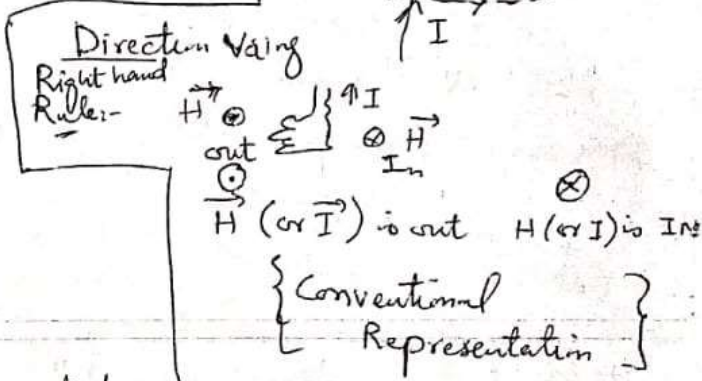 I
Direction Vsing
Right hand
Rule:-
H ↑ I
out ⊗ H
In
⊙ ⊗
H (or I) is out H (or I) is In
{ Conventional
Representation }